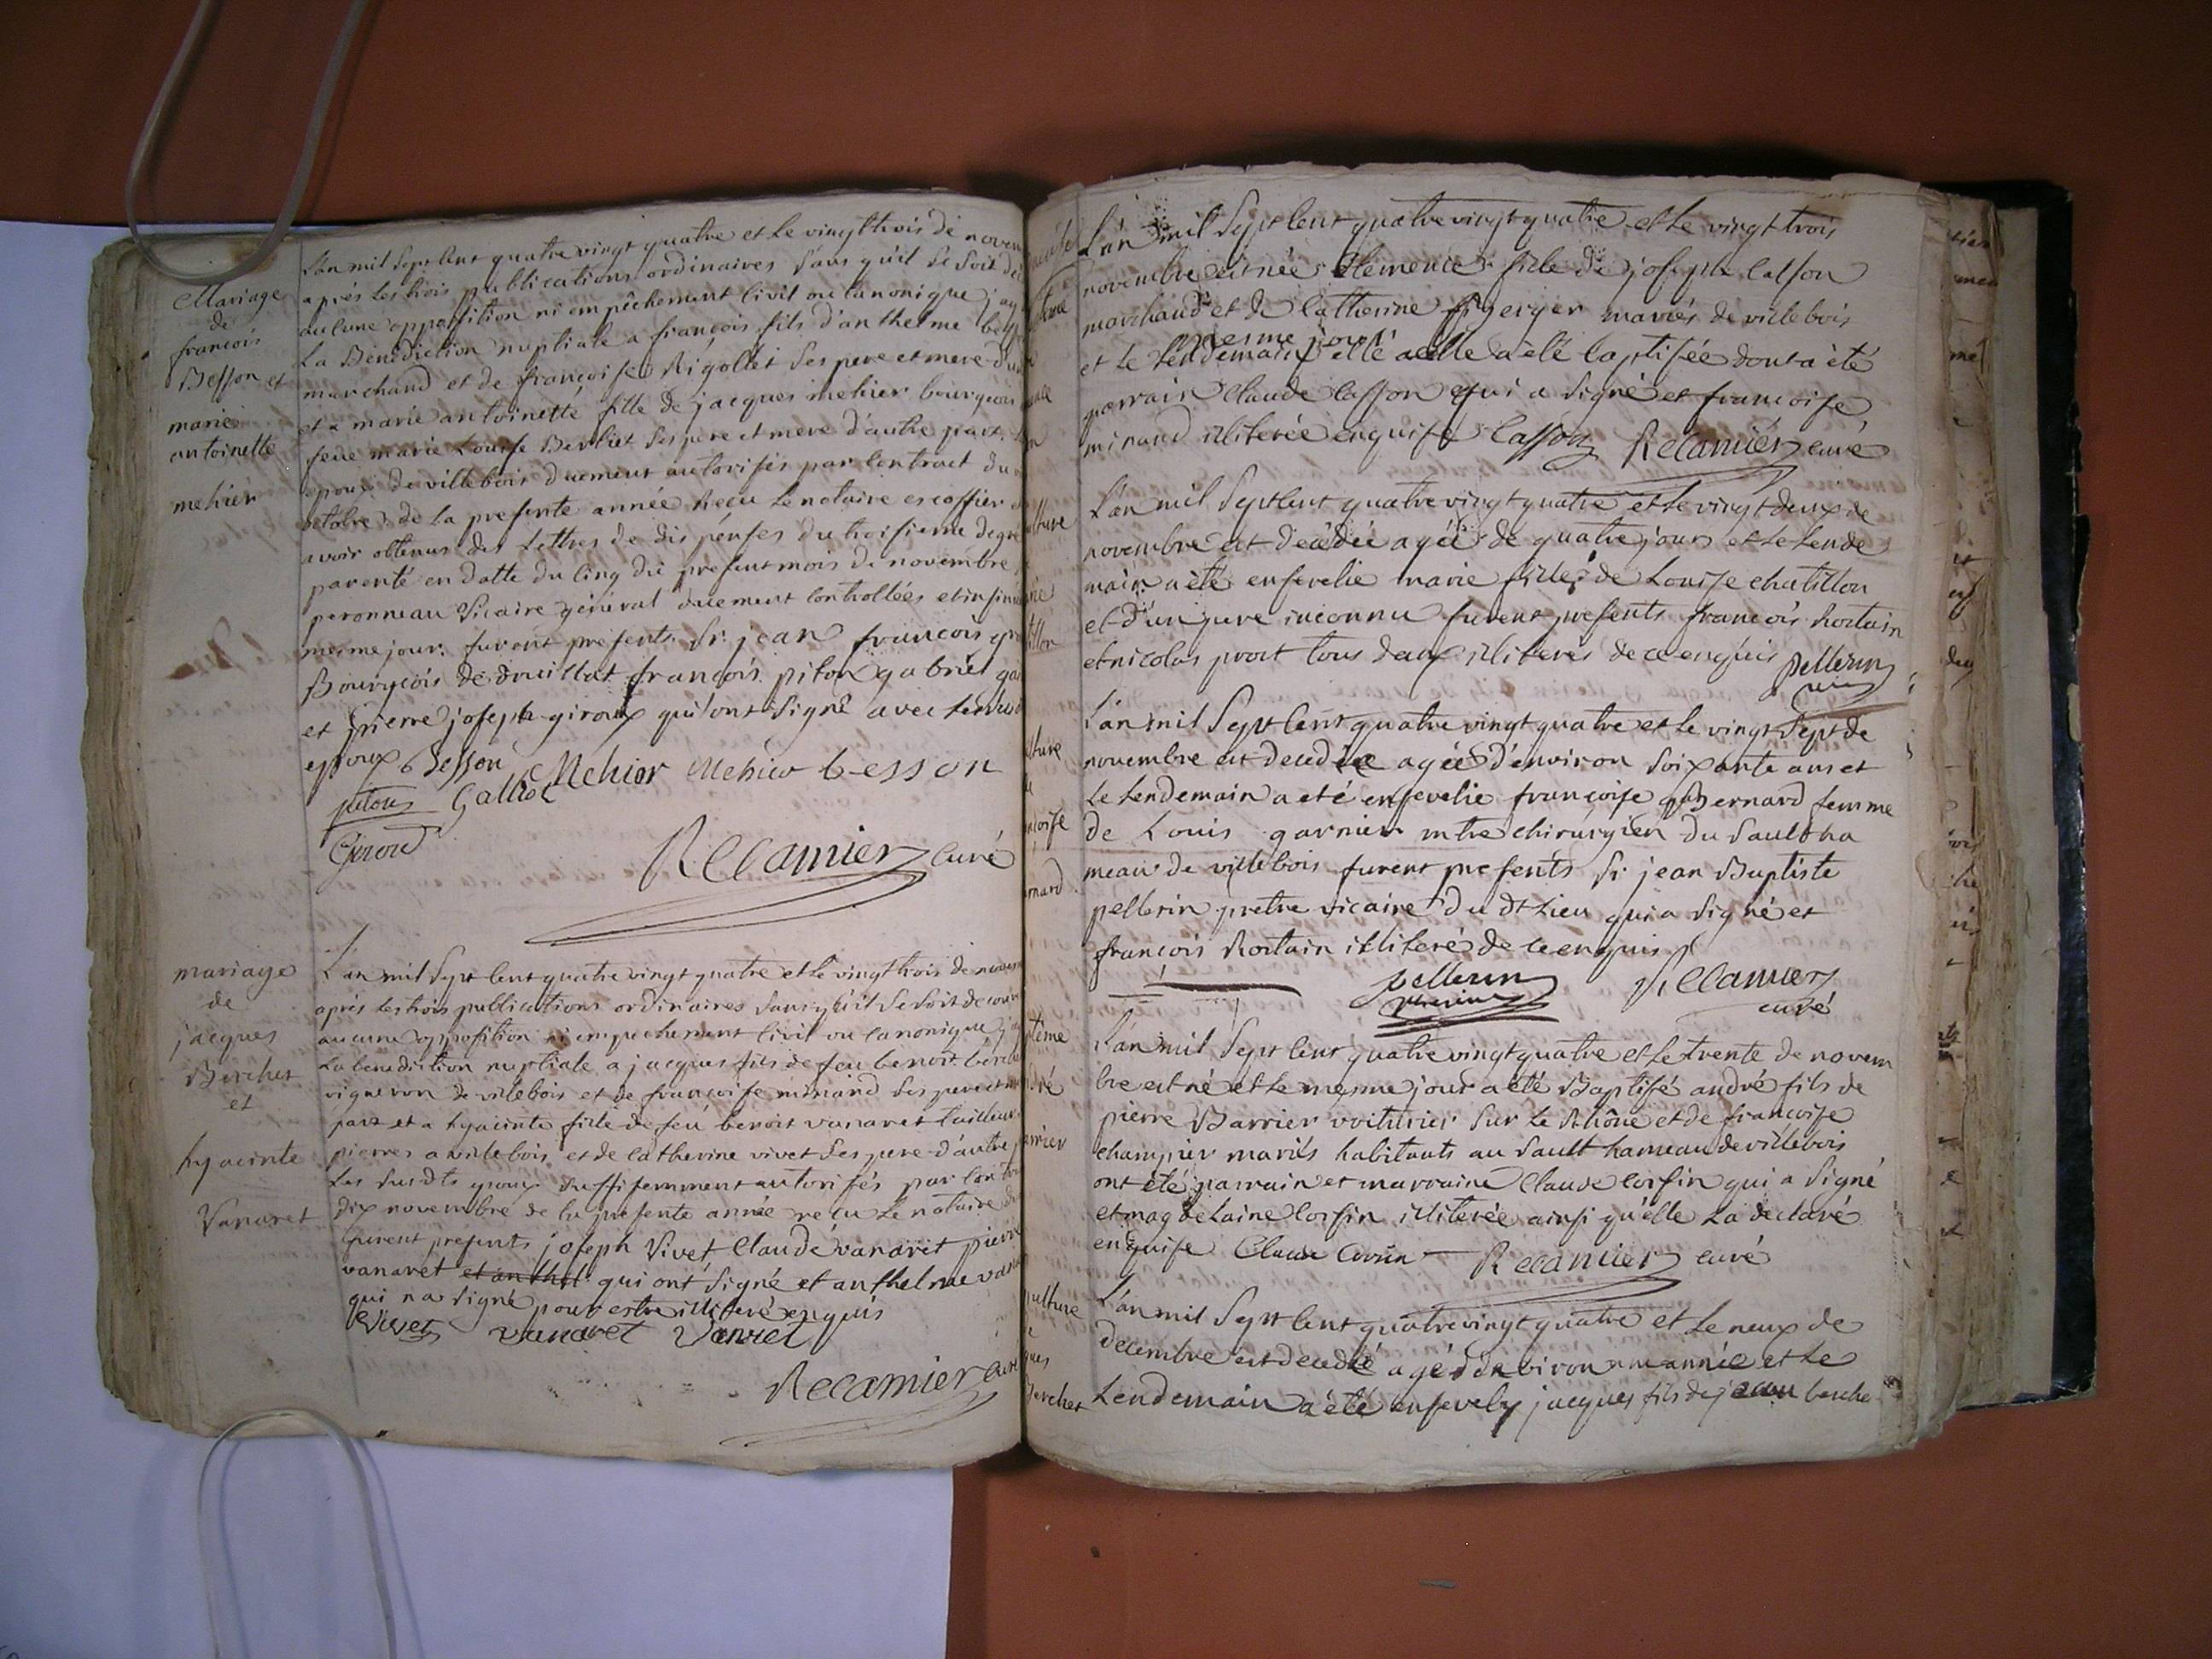 Mariage
de
francois
Besson et
marie
antoinette
mehier
L'an mil sept cent quatre vingt quatre et le vingt trois de novem
après les trois publications ordinaires sans qu'il se soit
aucune opposition ni empêchement civil ou canonique j'ay
La Bénédiction nuptiale a françois fils d'anthelme
marchand et de françoise Rigollet ses pere et mere d'une
et a marie antoinette fille de jacques mehier bourgeois
feue marie Louise Berliet ses pere et mere d'autre part.
epoux de villebois duement autorisés par contract du
octobre de la presente année Reçu le notaire escoffier
avoir obtenus des Lettres de dispenses du troisieme degré
parenté en datte du cinq du présent mois de novembre
peronneau Vicaire général duement controllées et insinu
mesme jour. furent presents Sr. jean françois
Bourgeois de françois piton gabriel
et pierre joseph giroux qui ont Signé avec
epoux Besson Mehier Mehier besson
piton Galliot
Giroud
Recamier curé
mariage
de
jacques
Berchet
et
hyacinte
Vanaret
L'an mil sept cent quatre vingt quatre et le vingt trois de novem
après les trois publications ordinaires sans qu'il se soit decouv
aucune opposition ni empechement civil ou canonique j'ay
La benediction nuptiale a jacques fils de feu benoit berch
vigneron de villebois et de françoise minand ses pere et m
part et a hyacinte fille de feu benoit vanaret tailleur
pierres a villebois et de catherine vivet ses pere d'autre p
Les susdts epoux suffisemment autorisés par contr
dix novembre de la presente année recu le notaire
furent presents joseph Vivet Claude vanaret pierre
vanaret et anthel qui ont signé et anthelme vana
qui na signé pour estre illiteré enquis
Vivet vanaret Vanret
Recamier curé
L'an mil Sept Cent quatre vingt quatre et le vingt trois
novembre est née Clémence fille de joseph Casson
marchand et de Catherine mariés de villebois
mesme jour
et le lendemain elle a été baptisée dont a été
parrain Claude Casson qui a signé et françoise
minand illiterée enquise Casson Recamier curé
L'an mil Sept Cent quatre vingt quatre et le vingt deux de
novembre est décédée agée de quatre jours et le lende
main a été ensevelie marie fille de Louise chatillon
et d'un pere inconnu furent presents françois Rortain
et nicolas prost tous deux illiterés de ce enquis pellerin
vic
L'an mil Sept Cent quatre vingt quatre et le vingt Sept de
novembre est decedée agée d'environ soixante ans et
Le lendemain a eté ensevelie françoise Bernard femme
de Louis garnier mtre chirurgien du Sault ha
meau de villebois furent presents Sr jean Baptiste
pellerin pretre vicaire du dt Lieu qui a signé et
françois Rortain illiteré de ce enquis
pellerin Recamier
curé
L'an mil Sept Cent quatre vingt quatre et le trente de novem
bre est né et le mesme jour a été Baptisé andré fils de
pierre Barrier voiturier sur le Rhône et de françoise
champier mariés habitants au Sault hameau de villebois
ont été parrain et marraine Claude corsin qui a signé
et magdelaine Corsin illiterée ainsi qu'elle La declaré
enquise Claude Corsin Recamier curé
L'an mil Sept Cent quatre vingt quatre et le neuf de
decembre est decedé agé d'environ une année et le
Lendemain a été ensevely jacques fils de jean berche